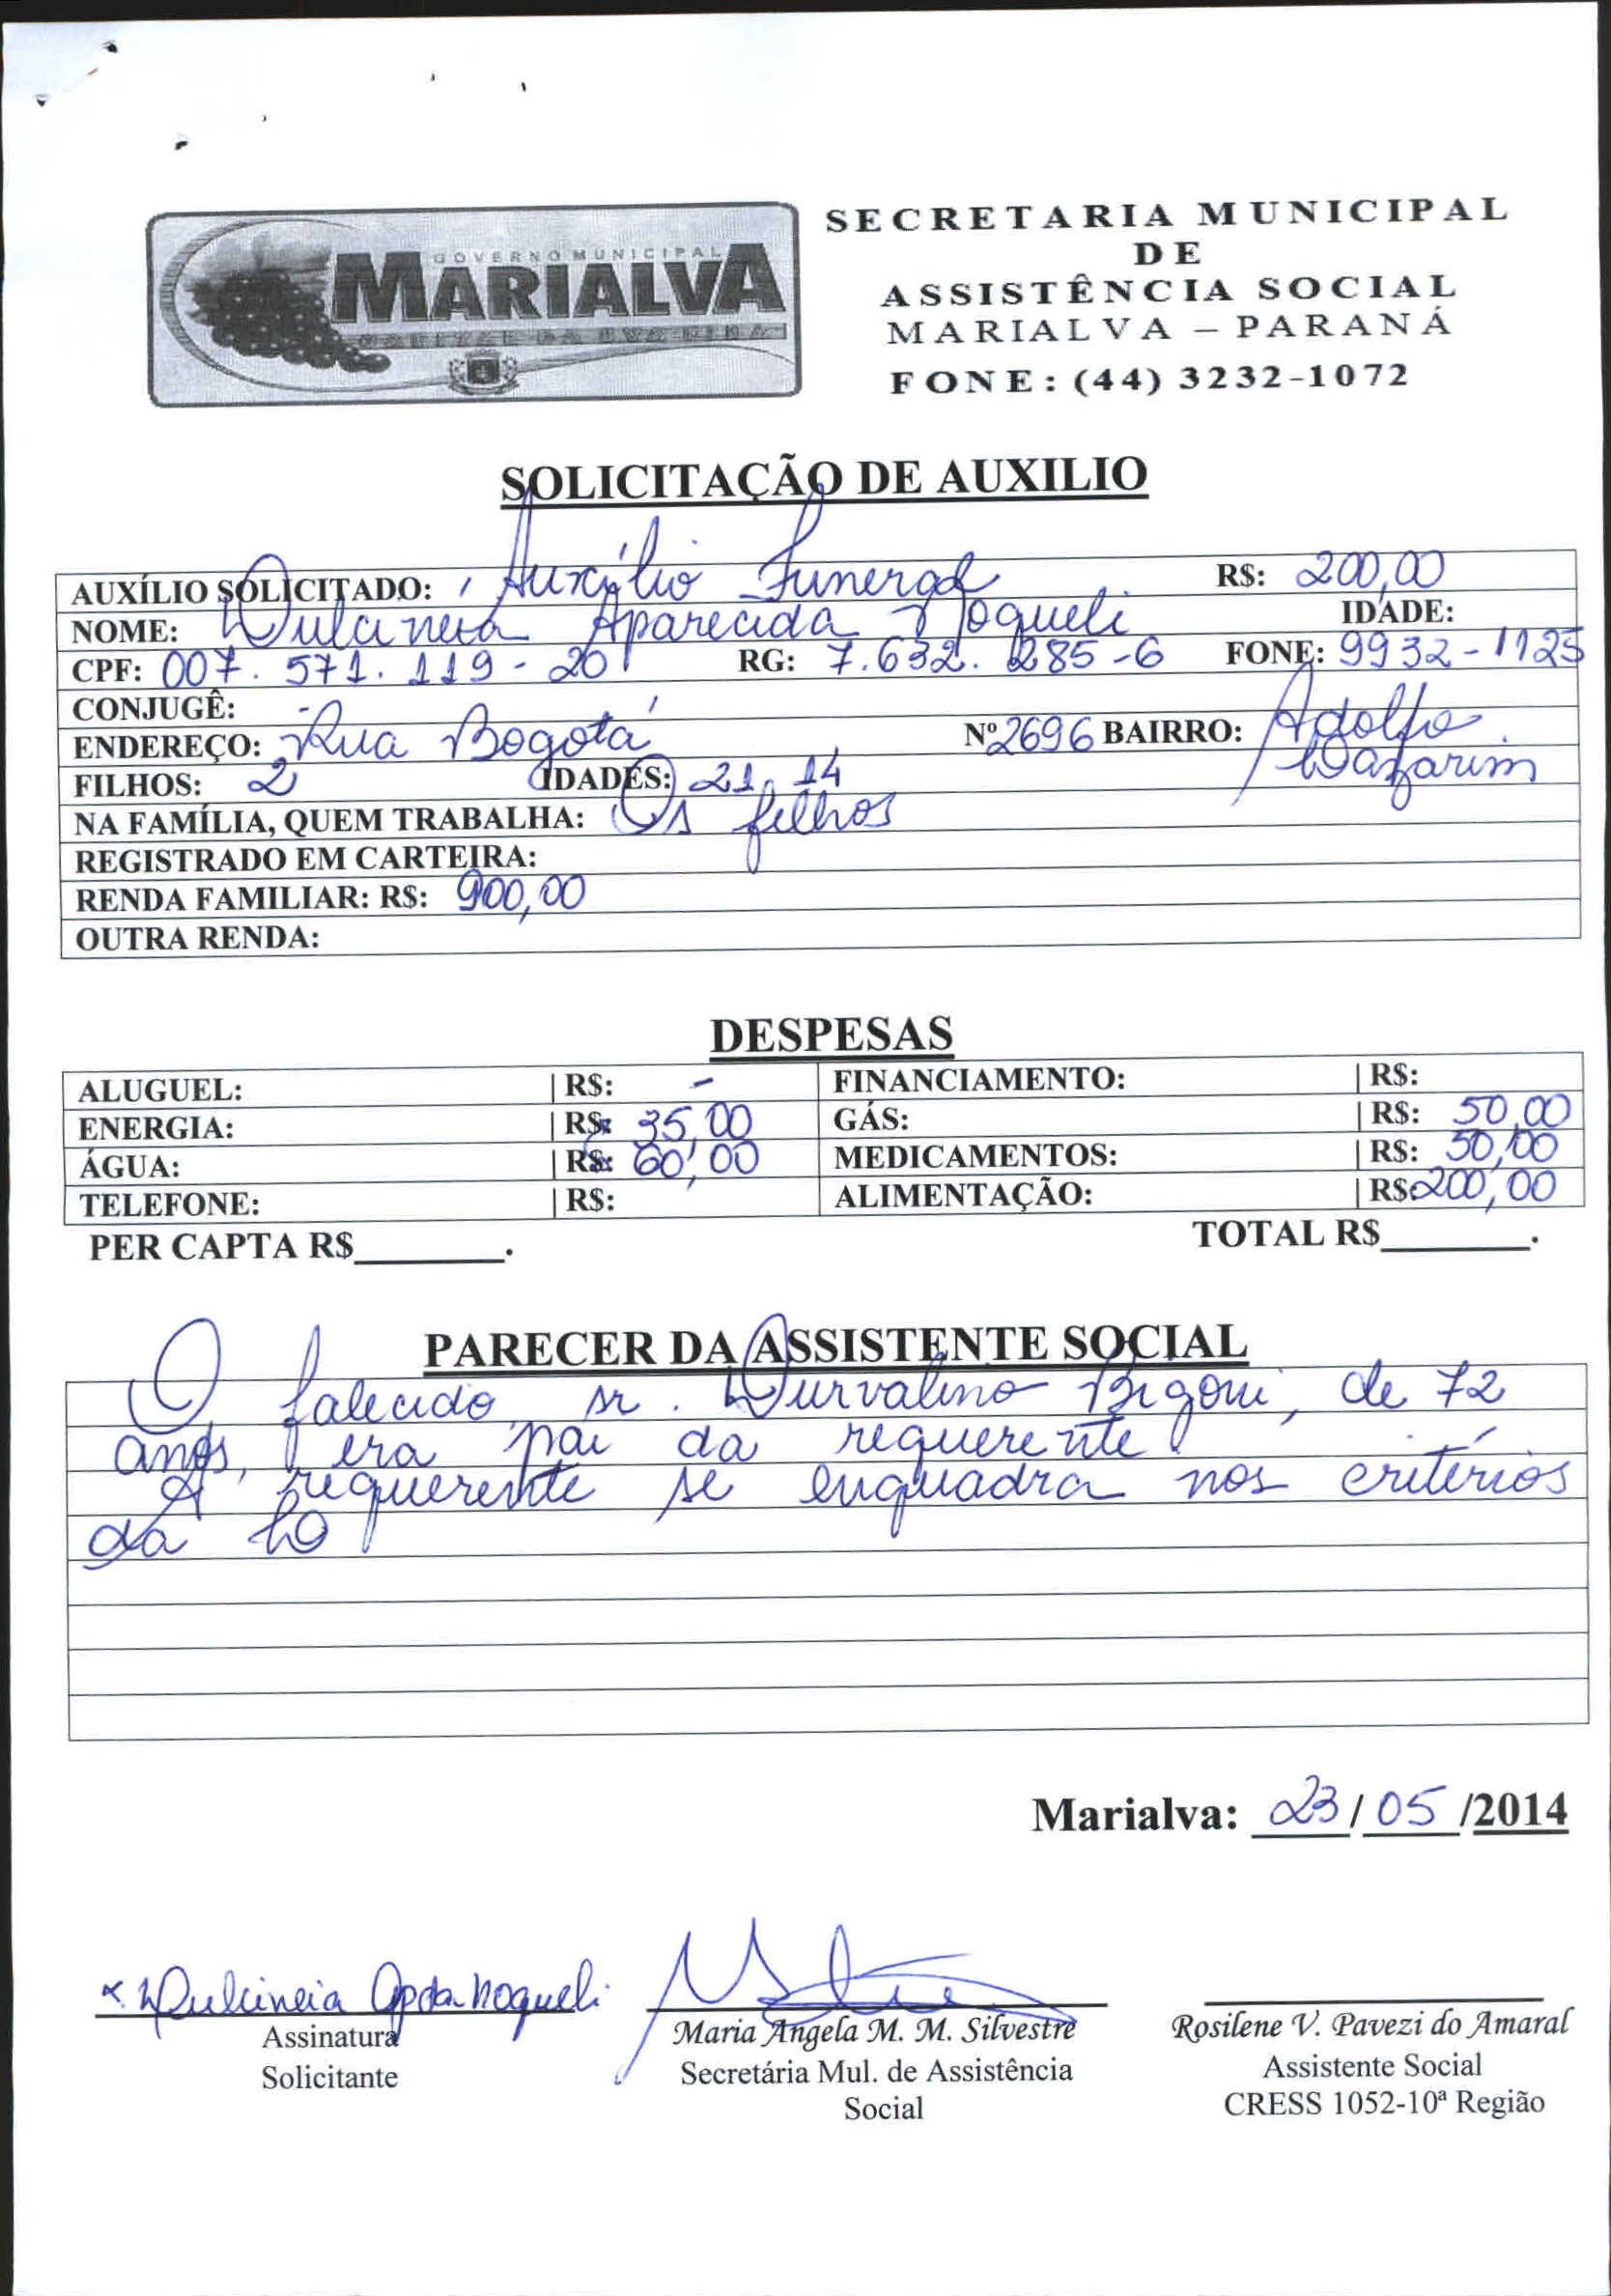 GOVERNO MUNICIPAL
MARIALVA
CAPITAL DA UVA FINA
SECRETARIA MUNICIPAL
DE
ASSISTÊNCIA SOCIAL
MARIALVA – PARANÁ
FONE: (44) 3232-1072
SOLICITAÇÃO DE AUXILIO
AUXÍLIO SOLICITADO: Auxílio Funeral R$: 200,00
NOME: Dulcineia Aparecida Noqueli IDADE:
CPF: 007.571.119-20 RG: 7.632.285-6 FONE: 9932-1125
CONJUGÊ: -
ENDEREÇO: Rua Bogotá Nº 2696 BAIRRO: Adolfo
FILHOS: 2 IDADES: 21, 14
NA FAMÍLIA, QUEM TRABALHA: Os filhos
REGISTRADO EM CARTEIRA:
RENDA FAMILIAR: R$: 900,00
OUTRA RENDA:
DESPESAS
ALUGUEL: | R$: - FINANCIAMENTO: | R$:
ENERGIA: | R$: 35,00 GÁS: | R$: 50,00
ÁGUA: | R$: 60,00 MEDICAMENTOS: | R$: 50,00
TELEFONE: | R$: ALIMENTAÇÃO: | R$: 200,00
PER CAPTA R$_______. TOTAL R$_______.
PARECER DA ASSISTENTE SOCIAL
O falecido, sr. Durvalino Bigoni, de 72
anos, era pai da requerente.
A requerente se enquadra nos critérios
da LO
Marialva: 23/05/2014
x Dulcineia Apda Noqueli
Assinatura
Solicitante
Maria Angela M. M. Silvestre
Secretária Mul. de Assistência
Social
Rosilene V. Pavezi do Amaral
Assistente Social
CRESS 1052-10ª Região